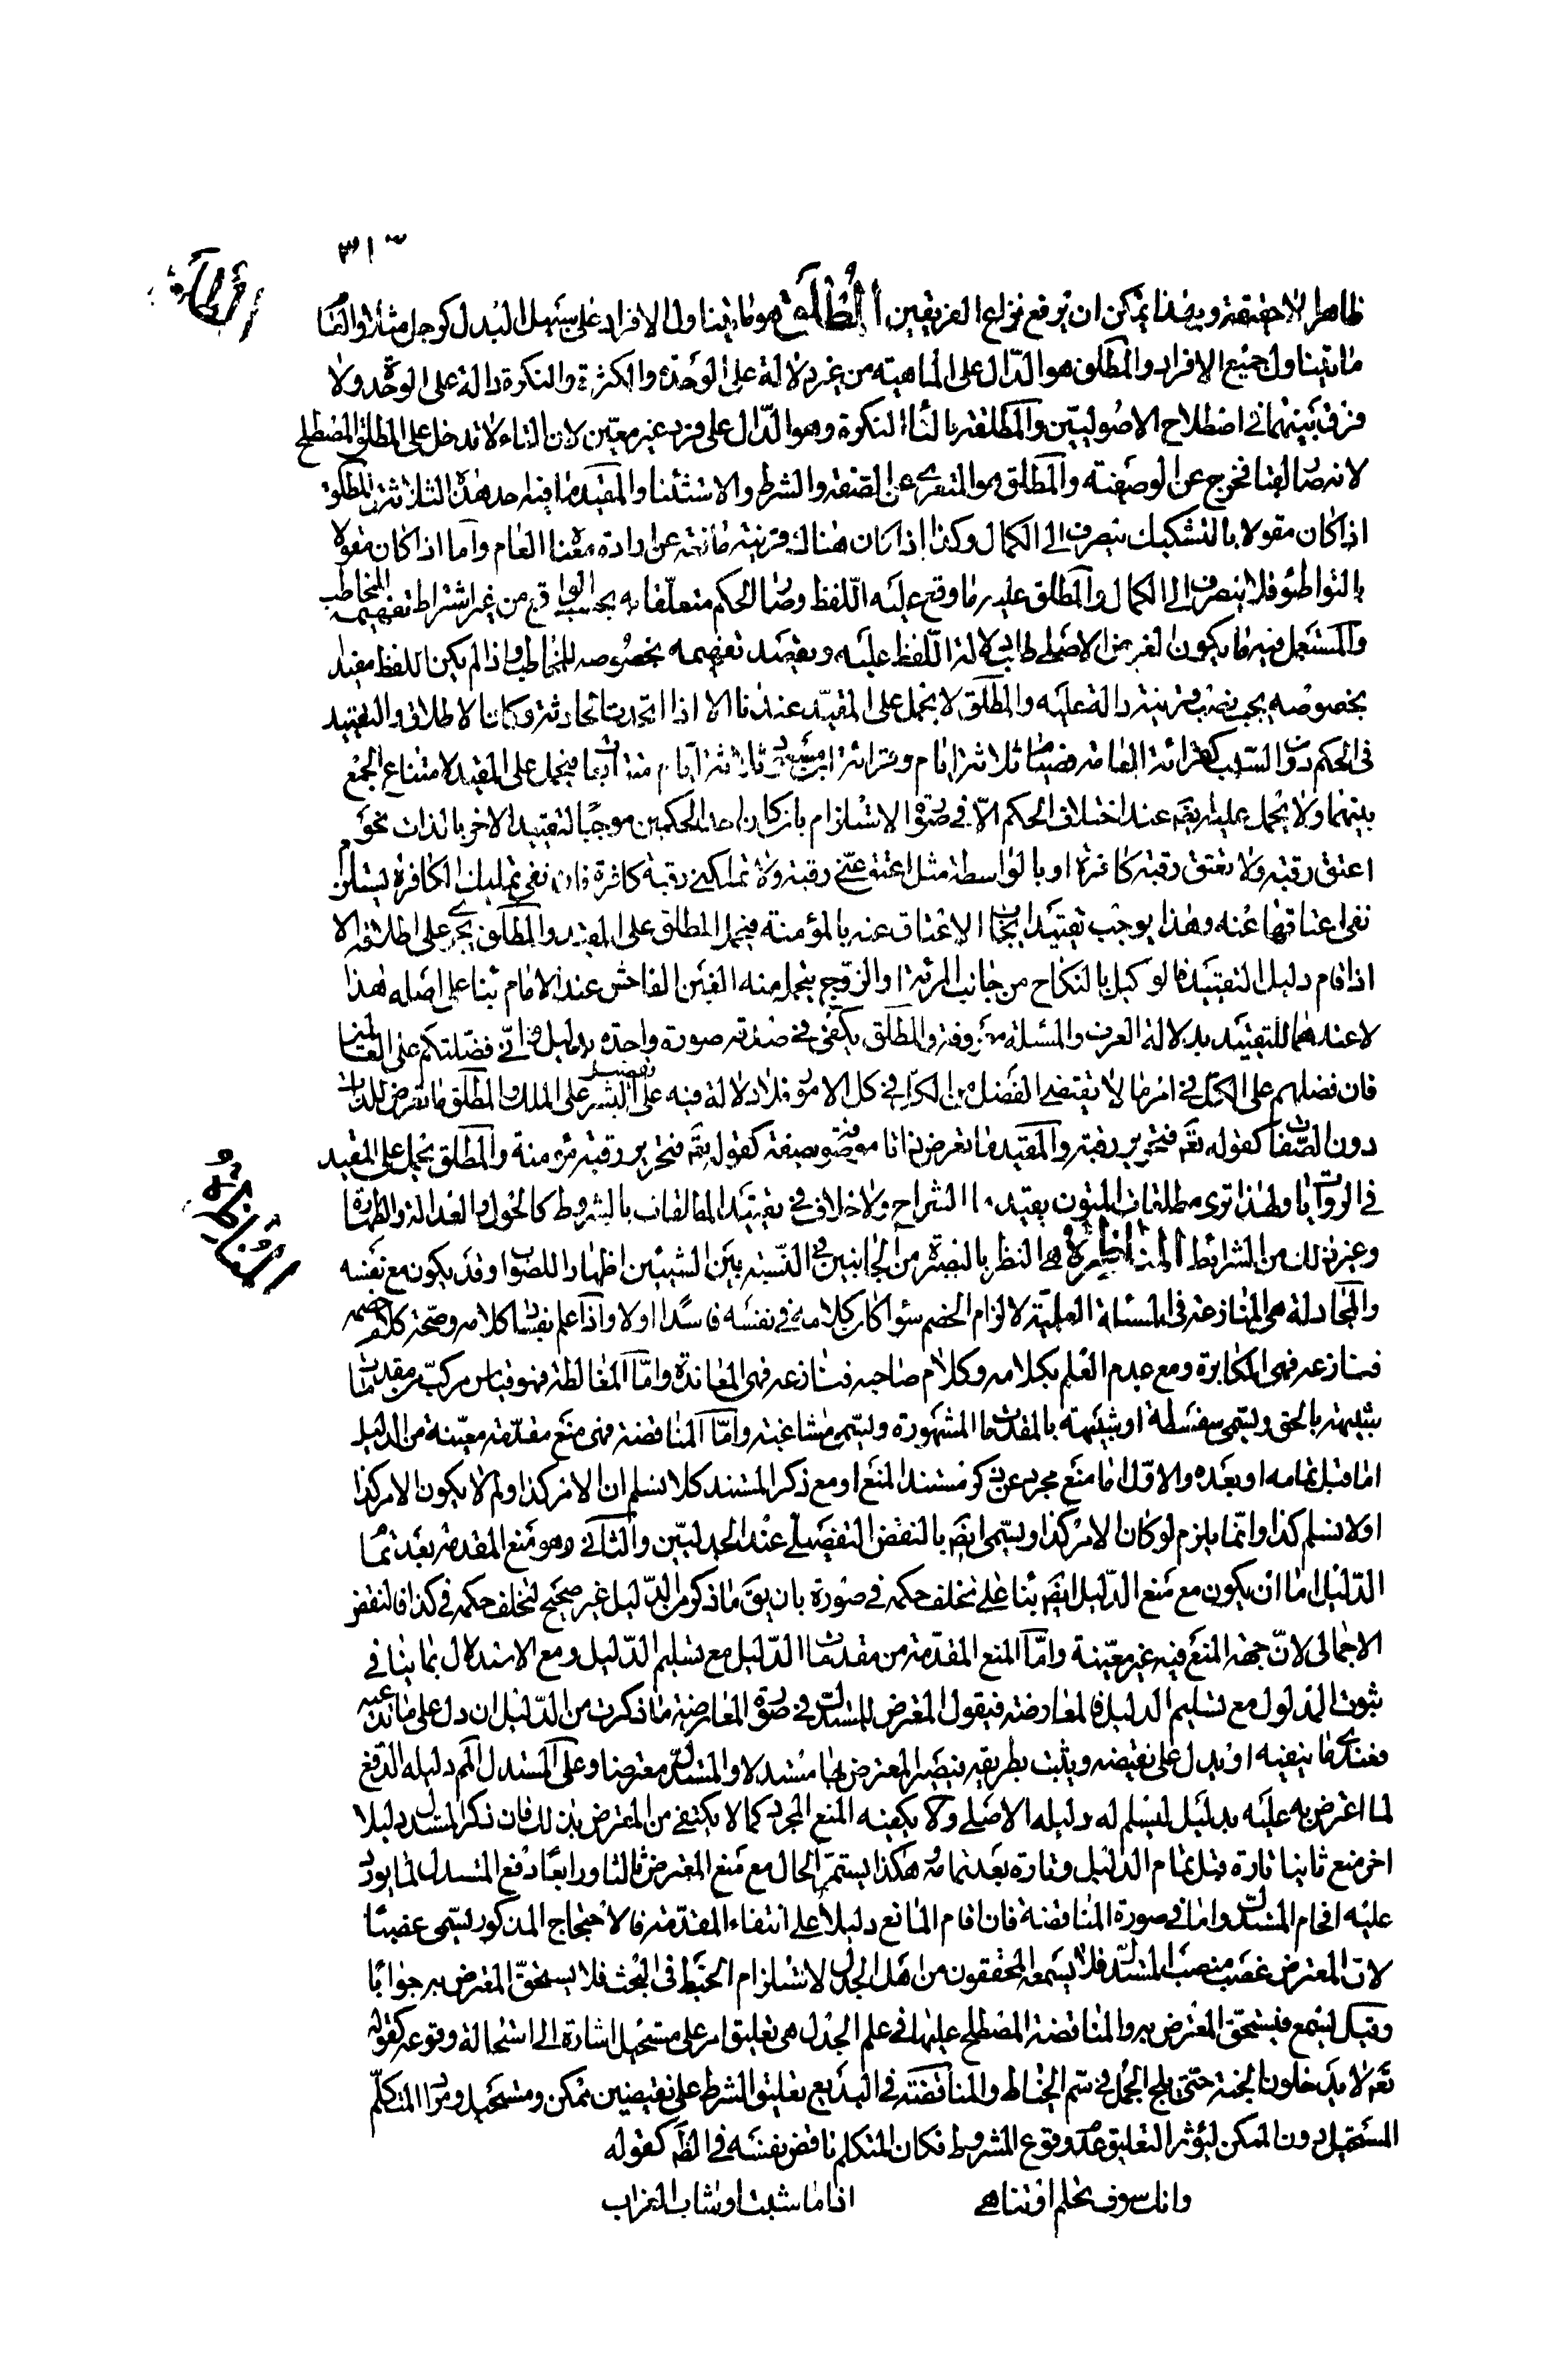 ٣١٣
المطلق
ظاهرا لا حقيقة وبهذا يمكن ان يرفع نزاع الفريقين المُطْلَق هو ما يتناول الافراد على سبيل البدل كرجل مثلا والعام
ما يتناول جميع الافراد والمطلق هو الدّال على الماهية من غير دلالة على الوحدة والكثرة والنكرة دالة على الوحدة ولا
فرق بينهما في اصطلاح الاصوليين والمطلقة بالتاء النكرة وهو الدّال على فرد غير معيّن لان التاء لا تدخل على المطلق المصطلح
لانه صار لقبا فخرج عن الوصفية والمطلق هو المتعرى عن الصفة والشرط والاستثناء والمقيد ما فيه احد هذه الثلاثة والمطلق
اذا كان مقولا بالتشكيك ينصرف الى الكمال وكذا اذا كان هناك قرينة مانعة عن ارادة معناه العام واما اذا كان مقولا
بالتواطئ فلا ينصرف الى الكمال والمطلق عليه ما وقع عليه اللفظ وصار الحكم متعلقا به بحسب الواقع من غير اشتراط تفهيمه المخاطب
والمستعمل فيه ما يكون الغرض الاصلي طالب دلالة اللفظ عليه ويقصد تفهيمه بخصوصه للمخاطب واذا لم يكن اللفظ مفيدا
بخصوصه يجب نصب قرينة دالة عليه والمطلق لا يحمل على المقيّد عندنا الا اذا اتحدت الحادثة وكان الاطلاق والتقييد
في الحكم دون السبب كقرائة العامة فصيام ثلاثة ايام وقرائة ابن مسعود ثلاثة ايام متتابعات فيحمل على المقيد لامتناع الجمع
بينهما ولا يحمل عليه ايضا عند اختلاف الحكم الّا في صورة الاستلزام بان كان احد الحكمين موجبا لتقييد الاخر بالذات نحو
اعتق رقبة ولا تعتق رقبة كافرة او بالواسطة مثل اعتق عنّي رقبة ولا تملكني رقبة كافرة فان نفي تمليك الكافرة يستلزم
نفي اعتاقها عنه وهذا يوجب تقييد ايجاب الاعتاق عنه بالمؤمنة فيحمل المطلق على المقيد والمطلق يجرى على اطلاقه الا
اذا قام دليل التقييد فالوكيل بالنكاح من جانب المرئة او الزوج يتحمل منه الغبن الفاحش عند الامام بناء على اصله هذا
لا عندهما للتقييد بدلالة العرف والمسئلة معروفة والمطلق يكفي في صدقه صورة واحدة بدليل انّي فضّلتكم على العالمين
فان فضلهم على الكل في امر ما لا يقتضى الفضل من الكل في كل الامور فلا دلالة فيه على تفضيل البشر على الملك والمطلق ما تعرض للذات
دون الصفات كقوله تعم فتحرير رقبة والمقيد ما تعرض ذاتا موصوفة بصفة كقوله تعم فتحرير رقبة مؤمنة والمطلق يحمل على المقيد
في الروايات ولهذا ترى مطلقات المتون يقيدها الشراح ولا خلاف في تقييد المطلقات بالشروط كالحول والعدالة والطهارة
المُنَاظَرَةُ
وغير ذلك من الشرائط المناظرة هى النظر بالبصيرة من الجانبين في النسبة بين الشيئين اظهارا للصواب وقد يكون مع نفسه
والمجادلة هى المنازعة في المسئلة العلميّة لالزام الخصم سواء كان كلامه في نفسه فاسدا اولا واذا علم بفساد كلامه وصحة كلام خصمه
فنازعه فهى المكابرة ومع عدم العلم بكلامه وكلام صاحبه فنازعه فهى المعاندة وامّا المغالطة فهو قياس مركّب من مقدمات
شبيهة بالحق ويسمى سفسطة او شبيهة بالمقدمات المشهورة ويسمى مشاغبة وامّا المناقضة فهى منع مقدّمة معيّنة من الدليل
اما قبل تمامه او بعده والاول اما منع مجرد عن ذكر مستند المنع او مع ذكر المستند كلا نسلم ان الامر كذا ولم لا يكون الامر كذا
اولا نسلم كذا وانّما يلزم لو كان الامر كذا ويسمى ايضا بالنقض التفصيلي عند الجدليين والثاني وهو منع المقدمة بعد تمام
الدّليل اما ان يكون مع منع الدّليل ايضا بناء على تخلف حكمه في صورة بان يقال ما ذكر من الدّليل غير صحيح لتخلف حكمه في كذا فالنقض
الاجمالى لانّ جهة المنع فيه غير معيّنة وامّا المنع المقدّمة من مقدمات الدّليل مع تسليم الدّليل ومع الاستدلال بما ينافي
ثبوت المدلول مع تسليم الدليل فالمعارضة فيقول المعترض للمستدل في صورة المعارضة ما ذكرت من الدّليل ان دل على ما تدّعيه
فعندى ما ينفيه او يدل على نقيضه ويثبت بطريقه فيصير المعترض بها مستدلا والمستدل معترضا وعلى المستدل الدفع
لما اعترض به عليه بدليل ليسلم له دليله الاصلي ولا يكفيه المنع المجرد كما لا يكتفى من المعترض بذلك فان ذكر المستدل دليلا
اخر منع ثانيا تارة قبل تمام الدليل وتارة بعد تمامه هكذا يستمر الحال مع منع المعترض ثالثا ورابعا ودفع المستدل لما يورد
عليه افحام المستدل واما في صورة المناقضة فان اقام المانع دليلا على انتفاء المقدّمة فالاحتجاج المذكور يسمى غصبا
لان المعترض غصب منصب المستدل فلا يسمعه المحققون من اهل الجدل لاستلزام الخبط في البحث فلا يستحق المعترض به جوابا
وقيل يسمع فيستحق المعترض به والمناقضة المصطلح عليها في علم الجدل هى تعليق امر على مستحيل اشارة الى استحالة وقوعه كقوله
تعم لا يدخلون الجنة حتى يلج الجمل في سم الخياط والمناقضة في البديع تعليق الشرط على نقيضين ممكن ومستحيل ومراد المتكلّم
المستحيل دون الممكن ليؤثر التعليق عدم وقوع المشروط فكان المتكلم ناقض نفسه في الظاهر كقوله
وانك سوف تحلم او تناهى اذا ما شبت او شاب الغراب